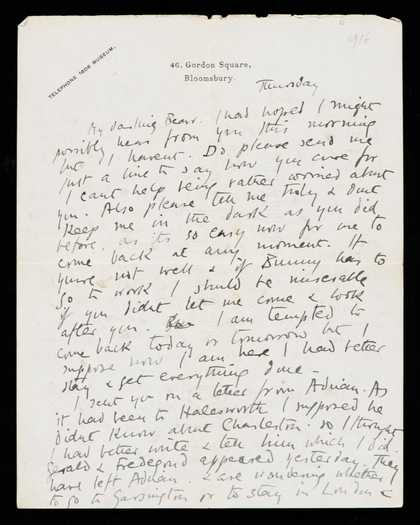 1916
TELEPHONE 1608 MUSEUM.
46, Gordon Square,
Bloomsbury.
Thursday
My darling Bear. I had hoped I might
possibly hear from you this morning
but I havent. Do please send me
just a line to say how you are for
I cant help being rather worried about
you. Also please tell me truly & dont
keep me in the dark as you did
before. as its so easy now for me to
come back at any moment. If
youre not well & if Bunny has to
go to work I should be miserable
if you didnt let me come & look
after you. I am tempted to
come back today or tomorrow but I
suppose now I am here I had better
stay & get everything done –
I sent you on a letter from Adrian. As
it had been to Halesworth I supposed he
didnt know about Charleston. so I thought
I had better write & tell him which I did.
Gerald & Fredegond appeared yesterday. They
have left Adrian. & are wondering whether
to go to Garsington or to stay in London &